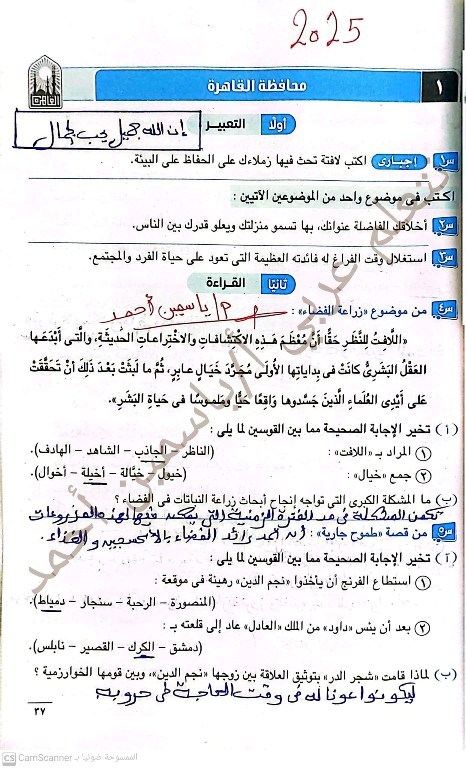 2025
١
محافظة القاهرة
القاهرة
أولًا التعبير
إن الله جميل يحب الجمال
س١ إجبارى اكتب لافتة تحث فيها زملاءك على الحفاظ على البيئة.
اكتب فى موضوع واحد من الموضوعين الآتيين :
س٢ أخلاقك الفاضلة عنوانك، بها تسمو منزلتك ويعلو قدرك بين الناس.
س٣ استغلال وقت الفراغ له فائدته العظيمة التى تعود على حياة الفرد والمجتمع.
ثانيًا القراءة
س٤ من موضوع «زراعة الفضاء» :
م/ ياسمين أحمد
«اللافِتُ لِلنَّظَرِ حَقًّا أَنَّ مُعْظَمَ هَذِهِ الاكْتِشَافَاتِ وَالِاخْتِرَاعَاتِ الحَدِيثَةِ، وَالَّتى أَبْدَعَهَا
العَقْلُ البَشَرِىُّ كَانَتْ فِى بِدَايَاتِهَا الأُولَى مُجَرَّدَ خَيَالٍ عَابِرٍ، ثُمَّ مَا لَبِثَتْ بَعْدَ ذَلِكَ أَنْ تَحَقَّقَتْ
عَلَى أَيْدِى العُلَمَاءِ الَّذِينَ جَسَّدُوهَا وَاقِعًا حَيًّا وَمَلْمُوسًا فِى حَيَاةِ البَشَرِ».
(أ) تخير الإجابة الصحيحة مما بين القوسين لما يلى :
١ المراد بـ «اللافت»: (الناظر – الجاذب – الشاهد – الهادف).
٢ جمع «خيال»: (خيول – خيّالة – أخيلة – أخوال).
(ب) ما المشكلة الكبرى التى تواجه إنجاح أبحاث زراعة النباتات فى الفضاء ؟
تكمن المشكلة فى مد الفترة الزمنية التى يمكن فيها لهذه المزروعات
س٥ من قصة «طموح جارية» : أن تمد رائد الفضاء بالأكسجين والغذاء.
(أ) تخير الإجابة الصحيحة مما بين القوسين لما يلى :
١ استطاع الفرنج أن يأخذوا «نجم الدين» رهينة فى موقعة :
(المنصورة – الرحبة – سنجار – دمياط).
٢ بعد أن يئس «داود» من الملك «العادل» عاد إلى قلعته بـ :
(دمشق – الكرك – القصير – نابلس).
(ب) لماذا قامت «شجر الدر» بتوثيق العلاقة بين زوجها «نجم الدين»، وبين قومها الخوارزمية ؟
ليكونوا عونا له فى وقت الحاجة فى حروبه
٣٧
تعلم عربي أ/ ياسمين أحمد
CS CamScanner الممسوحة ضوئيا بـ